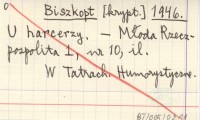 Biszkopt [krypt.] 1946.
U harcerzy. — Młoda Rzecz-
pospolita 1, nr 10, il.
W Tatrach. Humorystyczne.